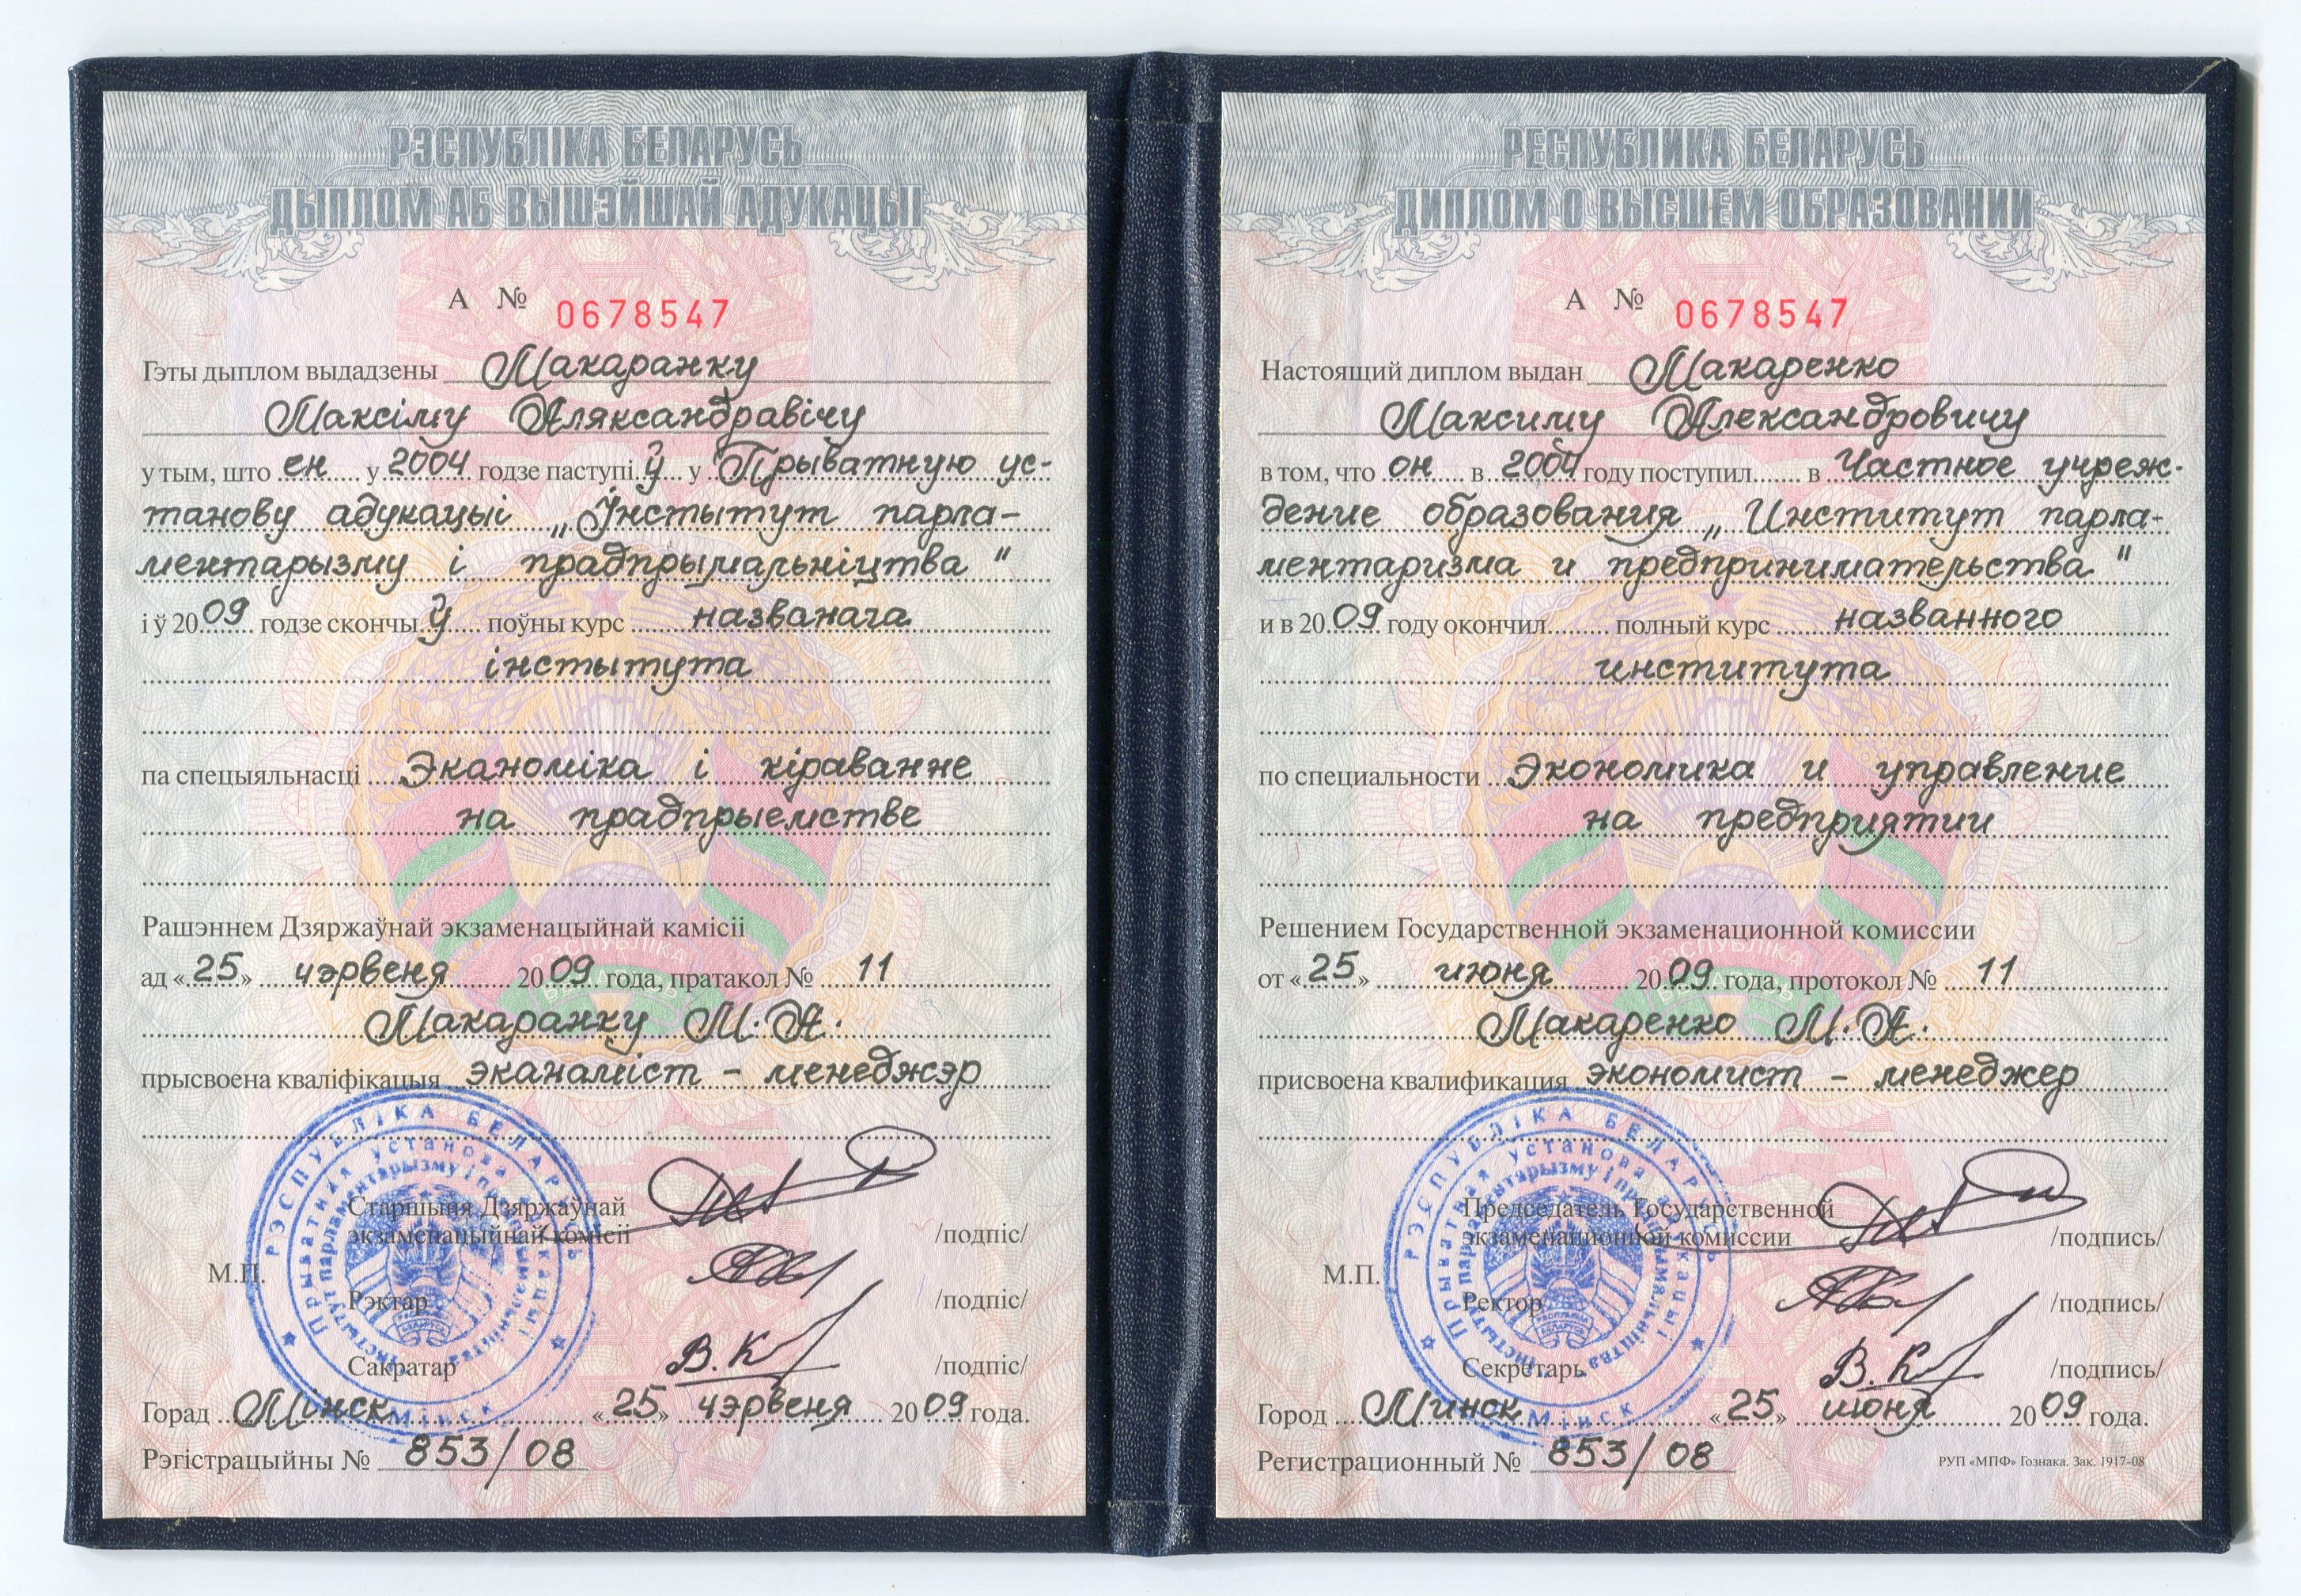 РЭСПУБЛІКА БЕЛАРУСЬ
ДЫПЛОМ АБ ВЫШЭЙШАЙ АДУКАЦЫІ
А № 0678547
Гэты дыплом выдадзены Макаранку
Максіму Аляксандравічу
у тым, што ён у 2004 годзе паступіў у Прыватную ус-
танову адукацыі „Інстытут парла-
ментарызму і прадпрымальніцтва"
і ў 2009 годзе скончыў поўны курс названага
інстытута
па спецыяльнасці Эканоміка і кіраванне
на прадпрыемстве
Рашэннем Дзяржаўнай экзаменацыйнай камісіі
ад «25» чэрвеня 2009 года, пратакол № 11
Макаранку М.А.
прысвоена кваліфікацыя эканаміст - менеджэр
Старшыня Дзяржаўнай
экзаменацыйнай камісіі /подпіс/
М.П.
Рэктар /подпіс/
Сакратар В.К /подпіс/
Горад Мінск «25» чэрвеня 2009 года.
Рэгістрацыйны № 853/08
РЭСПУБЛІКА БЕЛАРУСЬ
Прыватная установа адукацыі
Інстытут парламентарызму і прадпрымальніцтва
Мінск
РЕСПУБЛИКА БЕЛАРУСЬ
ДИПЛОМ О ВЫСШЕМ ОБРАЗОВАНИИ
А № 0678547
Настоящий диплом выдан Макаренко
Максиму Александровичу
в том, что он в 2004 году поступил в Частное учреж-
дение образования „Институт парла-
ментаризма и предпринимательства"
и в 2009 году окончил полный курс названного
института
по специальности Экономика и управление
на предприятии
Решением Государственной экзаменационной комиссии
от «25» июня 2009 года, протокол № 11
Макаренко М.А.
присвоена квалификация экономист - менеджер
Председатель Государственной
экзаменационной комиссии /подпись/
М.П.
Ректор /подпись/
Секретарь В.К /подпись/
Город Минск «25» июня 2009 года.
Регистрационный № 853/08
РУП «МПФ» Гознака. Зак. 1917-08
РЭСПУБЛІКА БЕЛАРУСЬ
Прыватная установа адукацыі
Інстытут парламентарызму і прадпрымальніцтва
Мінск